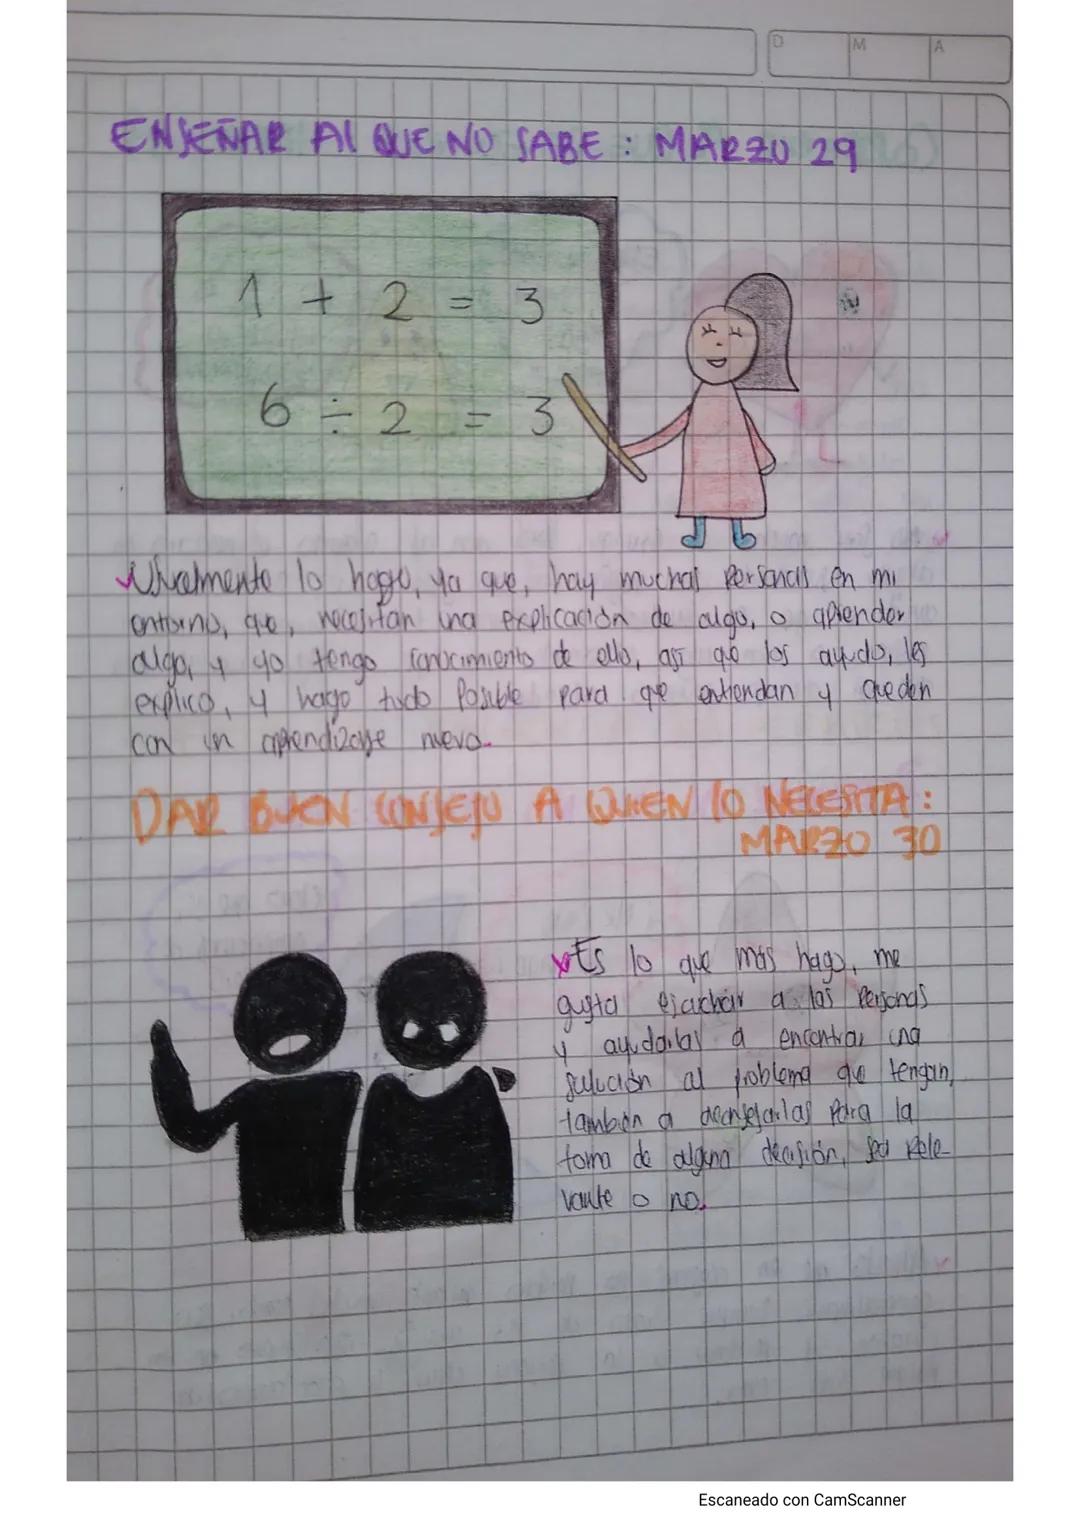 D M A
ENSEÑAR Al QUE NO SABE : MARZO 29
1 + 2 = 3
6 ÷ 2 = 3
lo hago, ya que, hay muchas personas en mi
entorno, que, necesitan una explicación de algo, o aprender
algo, y yo tengo conocimiento de ello, así que los ayudo, les
explico, y hago todo posible para que entiendan y queden
con un aprendizaje nuevo.
DAR BUEN CONSEJO A QUIEN lO NECESITA :
MARZO 30
Es lo que más hago, me
gusta escuchar a las personas
y ayudarlas a encontrar una
solución al problema que tengan,
también a aconsejarlas para la
toma de alguna decisión, sea rele-
vante o no.
Escaneado con CamScanner